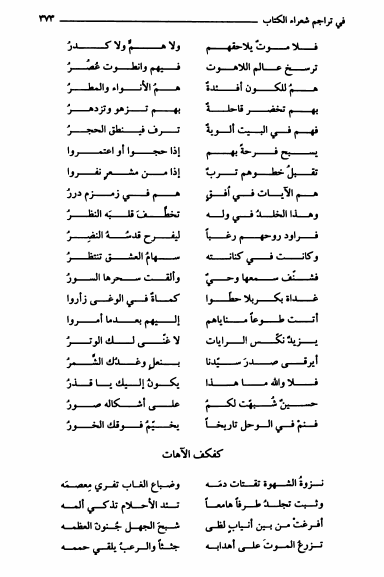 في تراجم شعراء الكتاب ٣٧٣
فلا موتٌ يلاحقهم ولا همٌّ ولا كدرُ
ترسخ عالم اللاهوت فيهم وانطوت عُصُرُ
همُ للكون أفئدةٌ همُ الأنواء والمطرُ
بهم تخضر قاحلةٌ بهم تزهو وتزدهرُ
فهم في البيت ألويةٌ ترف فينطق الحجرُ
يسبح فرحةً بهم إذا حجوا أو اعتمروا
تقبلُ خطوهم تربٌ إذا من مشعرٍ نفروا
هم الآيات في أفقٍ هم في زمزمٍ دررُ
وهذا الخلدُ في ولهٍ تخطّف قلبَه النظرُ
فراود روحهم رغباً ليفرح قدسُه النضِرُ
وكانت في كنانته سهامُ العشق تنتظرُ
فشنّف سمعها وحيٌ وألقت سحرها السورُ
غداة بكربلا حطّوا كماةٌ في الوغى زأروا
أتت طوعاً مناياهم إليهم بعدما أمروا
يزيدٌ نكّس الرايات لا غنّى لك الوترُ
أيرقى صدرَ سيّدنا بنعلٍ وغدُك الشَّمرُ
فلا والله ما هذا يكونُ إليك يا قذرُ
حسينٌ شُبهت لكمُ على أشكاله صورُ
فنمْ في الوحل تاريخاً يخيّمُ فوقك الخورُ
كفكف الآهات
نزوةُ الشهوة تقتات دمَه وضباع الغاب تفري مِعصمَه
وثبت تجلدُ طرفاً هامعاً تئد الأحلام تذكي ألمه
أفرغتْ من بين أنيابٍ لظى شبحَ الجهل جُنونَ العظمه
تزرعُ الموتَ على أهدابه جثثاً والرعبُ يلقي حممه